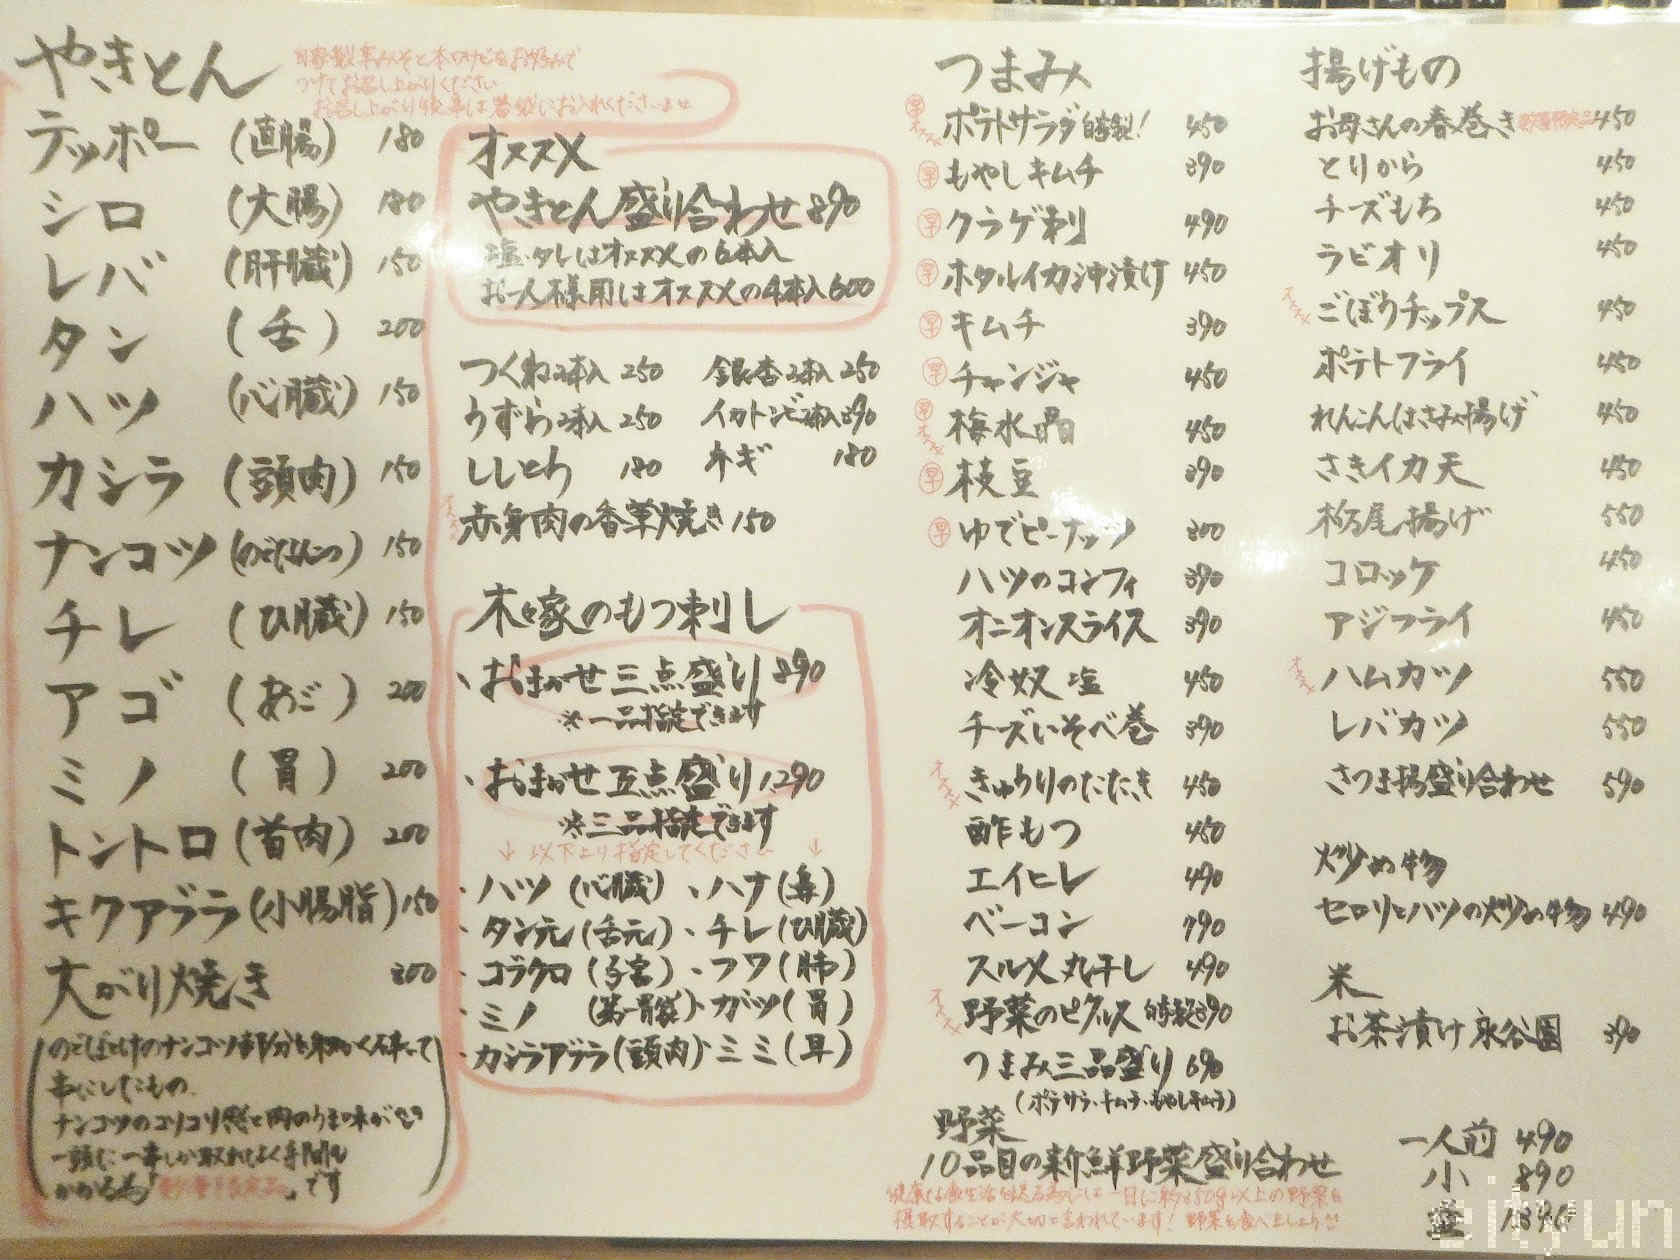 やきとん
自家製辛みそと本ワサビをお好みで
つけてお召し上がりください
お召し上がり後、串は
お入れくださいませ
テッポー (直腸) 180
シロ (大腸) 180
レバ (肝臓) 150
タン (舌) 200
ハツ (心臓) 150
カシラ (頭肉) 150
ナンコツ (のどなんこつ) 150
チレ (ひ臓) 150
アゴ (あご) 200
ミノ (胃) 200
トントロ (首肉) 200
キクアブラ (小腸脂) 150
大がり焼き 300
のどぼとけのナンコツ部分を細かく
串にしたもの
ナンコツのコリコリ感と肉のうま味が
一頭に一串しか取れなく手間も
かかる為「数量限定品」です
オススメ
やきとん盛り合わせ 890
塩・タレはオススメの6本入
お一人様用はオススメの4本入600
つくね2本入 250
銀杏2本入 250
うずら2本入 250
イカトンビ2本入390
ししとう 180
ネギ 180
オススメ 赤身肉の香草焼き 150
木々家のもつ刺し
、おまかせ三点盛り 890
※一品指定できます
、おまかせ五点盛り 1290
※三品指定できます
↓ 以下より指定してください ↓
・ハツ (心臓) 、ハナ (鼻)
・タン元 (舌元) 、チレ (ひ臓)
・コブクロ (子宮) 、フワ (肺)
・ミノ (第一胃袋) ・ガツ (胃)
・カシラアブラ (頭肉) ・ミミ (耳)
つまみ
早 オススメ ポテトサラダ自特製! 450
早 もやしキムチ 390
早 クラゲ刺 490
早 ホタルイカ沖漬け 450
早 キムチ 390
早 チャンジャ 450
早 オススメ 梅水晶 450
早 枝豆 390
早 ゆでピーナッツ 300
ハツのコンフィ 390
オニオンスライス 390
冷奴 塩 450
チーズいそべ巻 390
オススメ きゅうりのたたき 450
酢もつ 450
エイヒレ 490
ベーコン 790
スルメ丸干し 490
オススメ 野菜のピクルス 自特製390
つまみ三品盛り 690
(ポテサラ・キムチ・もやしキムチ)
野菜
10品目の新鮮野菜盛り合わせ
健康な食生活を送る為には一日に約350g以上の野菜を
摂取することが大切と言われています! 野菜も食べましょう
一人前 490
小 890
揚げもの
お母さんの春巻き 数量限定品 450
とりから 450
チーズもち 450
ラビオリ 450
オススメ ごぼうチップス 450
ポテトフライ 450
れんこんはさみ揚げ 450
さきイカ天 450
栃尾揚げ 550
コロッケ 450
アジフライ 450
オススメ ハムカツ 550
レバカツ 550
さつま揚盛り合わせ 590
炒め物
セロリとハツの炒め物 490
米
お茶漬け 永谷園 390
eityun